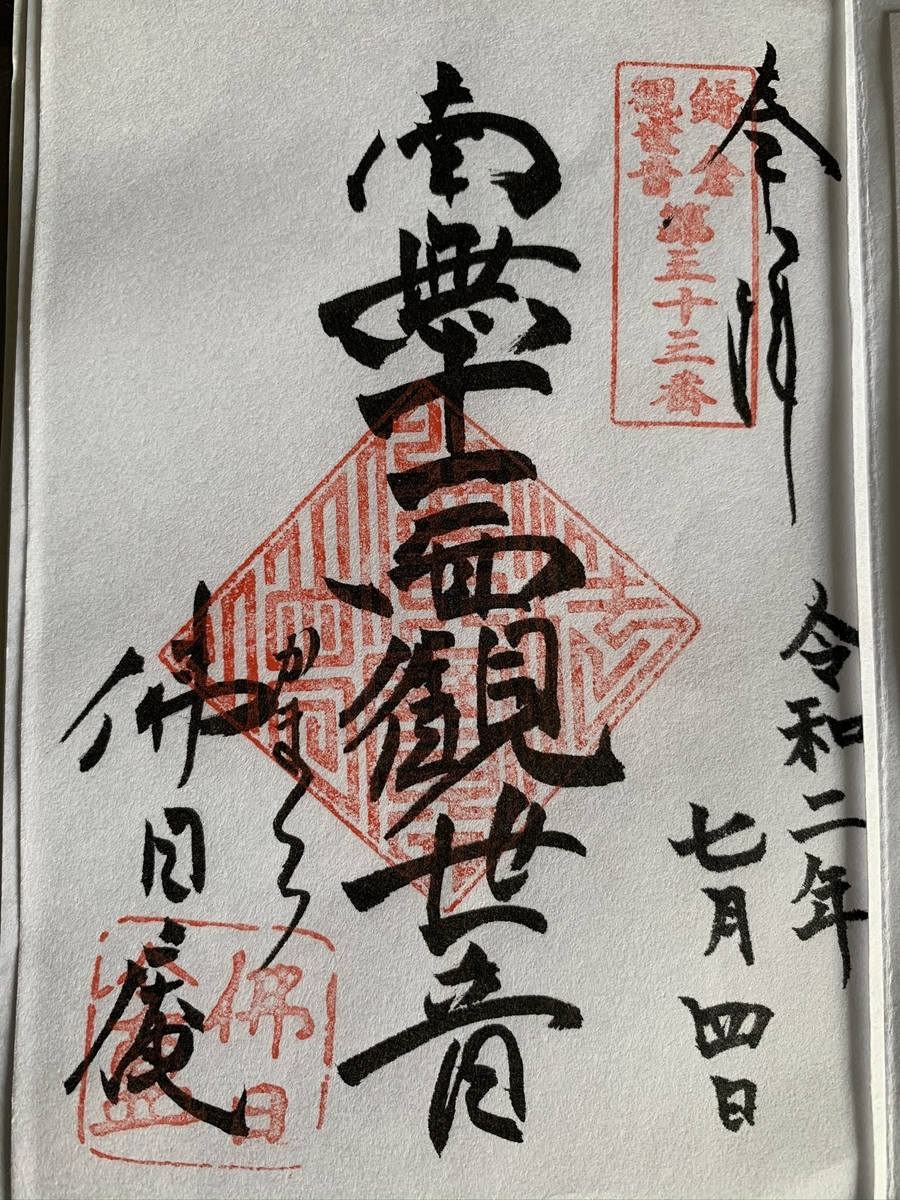 奉拝
鎌倉
観世音
第三十三番
令和二年
七月四日
南無十一面觀世音
かまくら
佛日庵
佛日